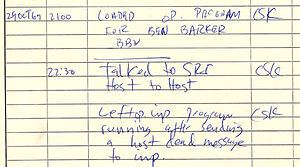 29 OCT 69 2100 LOADED OP. PROGRAM CSK
FOR BEN BARKER
BBN
22:30 Talked to SRI CSK
Host to Host
Left imp program CSK
running after sending
a host dead message
to imp.